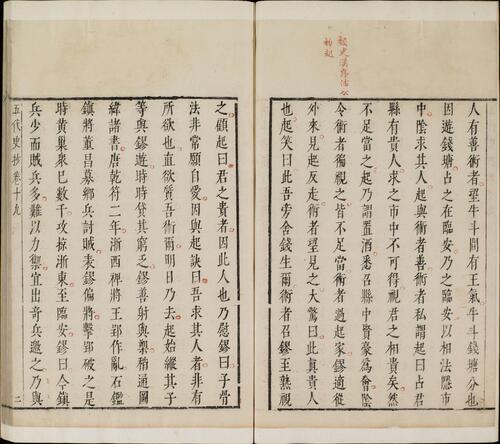 敍史漢序法公
初起
人有善術者望牛斗間有王氣牛斗錢塘分也
因遊錢塘占之在臨安乃之臨安以相法隱市
中陰求其人起與術者善術者私謂起曰占君
縣有貴人求之市中不可得視君之相貴矣然
不足當之起乃謂置酒悉召縣中賢豪為會陰
令術者徧視之皆不足當術者過起家鏐適從
外來見起反走術者望見之大驚曰此真貴人
也起笑曰此吾旁舍錢生爾術者召鏐至熟視
之顧起曰君之貴者因此人也乃慰鏐曰子骨
法非常願自愛因與起訣曰吾求其人者非有
所欲也直欲質吾術爾明日乃去起始縱其子
等與鏐遊時時貸其窮乏鏐善射與槊稍通圖
緯諸書唐乾符二年浙西裨將王郢作亂石鑑
鎮將董昌募鄉兵討賊表鏐偏將擊郢破之是
時黃巢衆已數千攻掠浙東至臨安鏐曰今鎮
兵少而賊兵多難以力禦宜出奇兵邀之乃與
五代史抄 卷十九
二